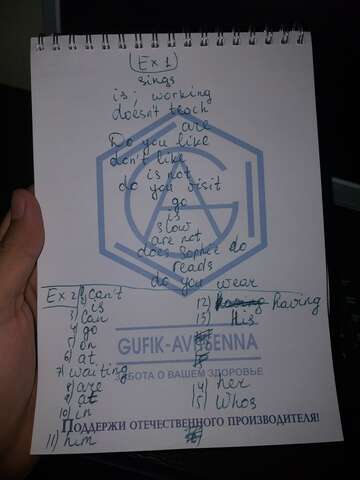 Ex 1
sings
is; working
doesn't teach
are
Do you like
don't like
is not
do you visit
go
is
slow
are not
does Sophie do
reads
do you wear
Ex 2
1) can't
2) is
3) can
4) go
5) on
6) at
7) waiting
8) are
9) at
10) in
11) him
12) having
13) His
14) her
15) Whos
GUFIK-AVICENNA
ЗАБОТА О ВАШЕМ ЗДОРОВЬЕ
ПОДДЕРЖИ ОТЕЧЕСТВЕННОГО ПРОИЗВОДИТЕЛЯ!